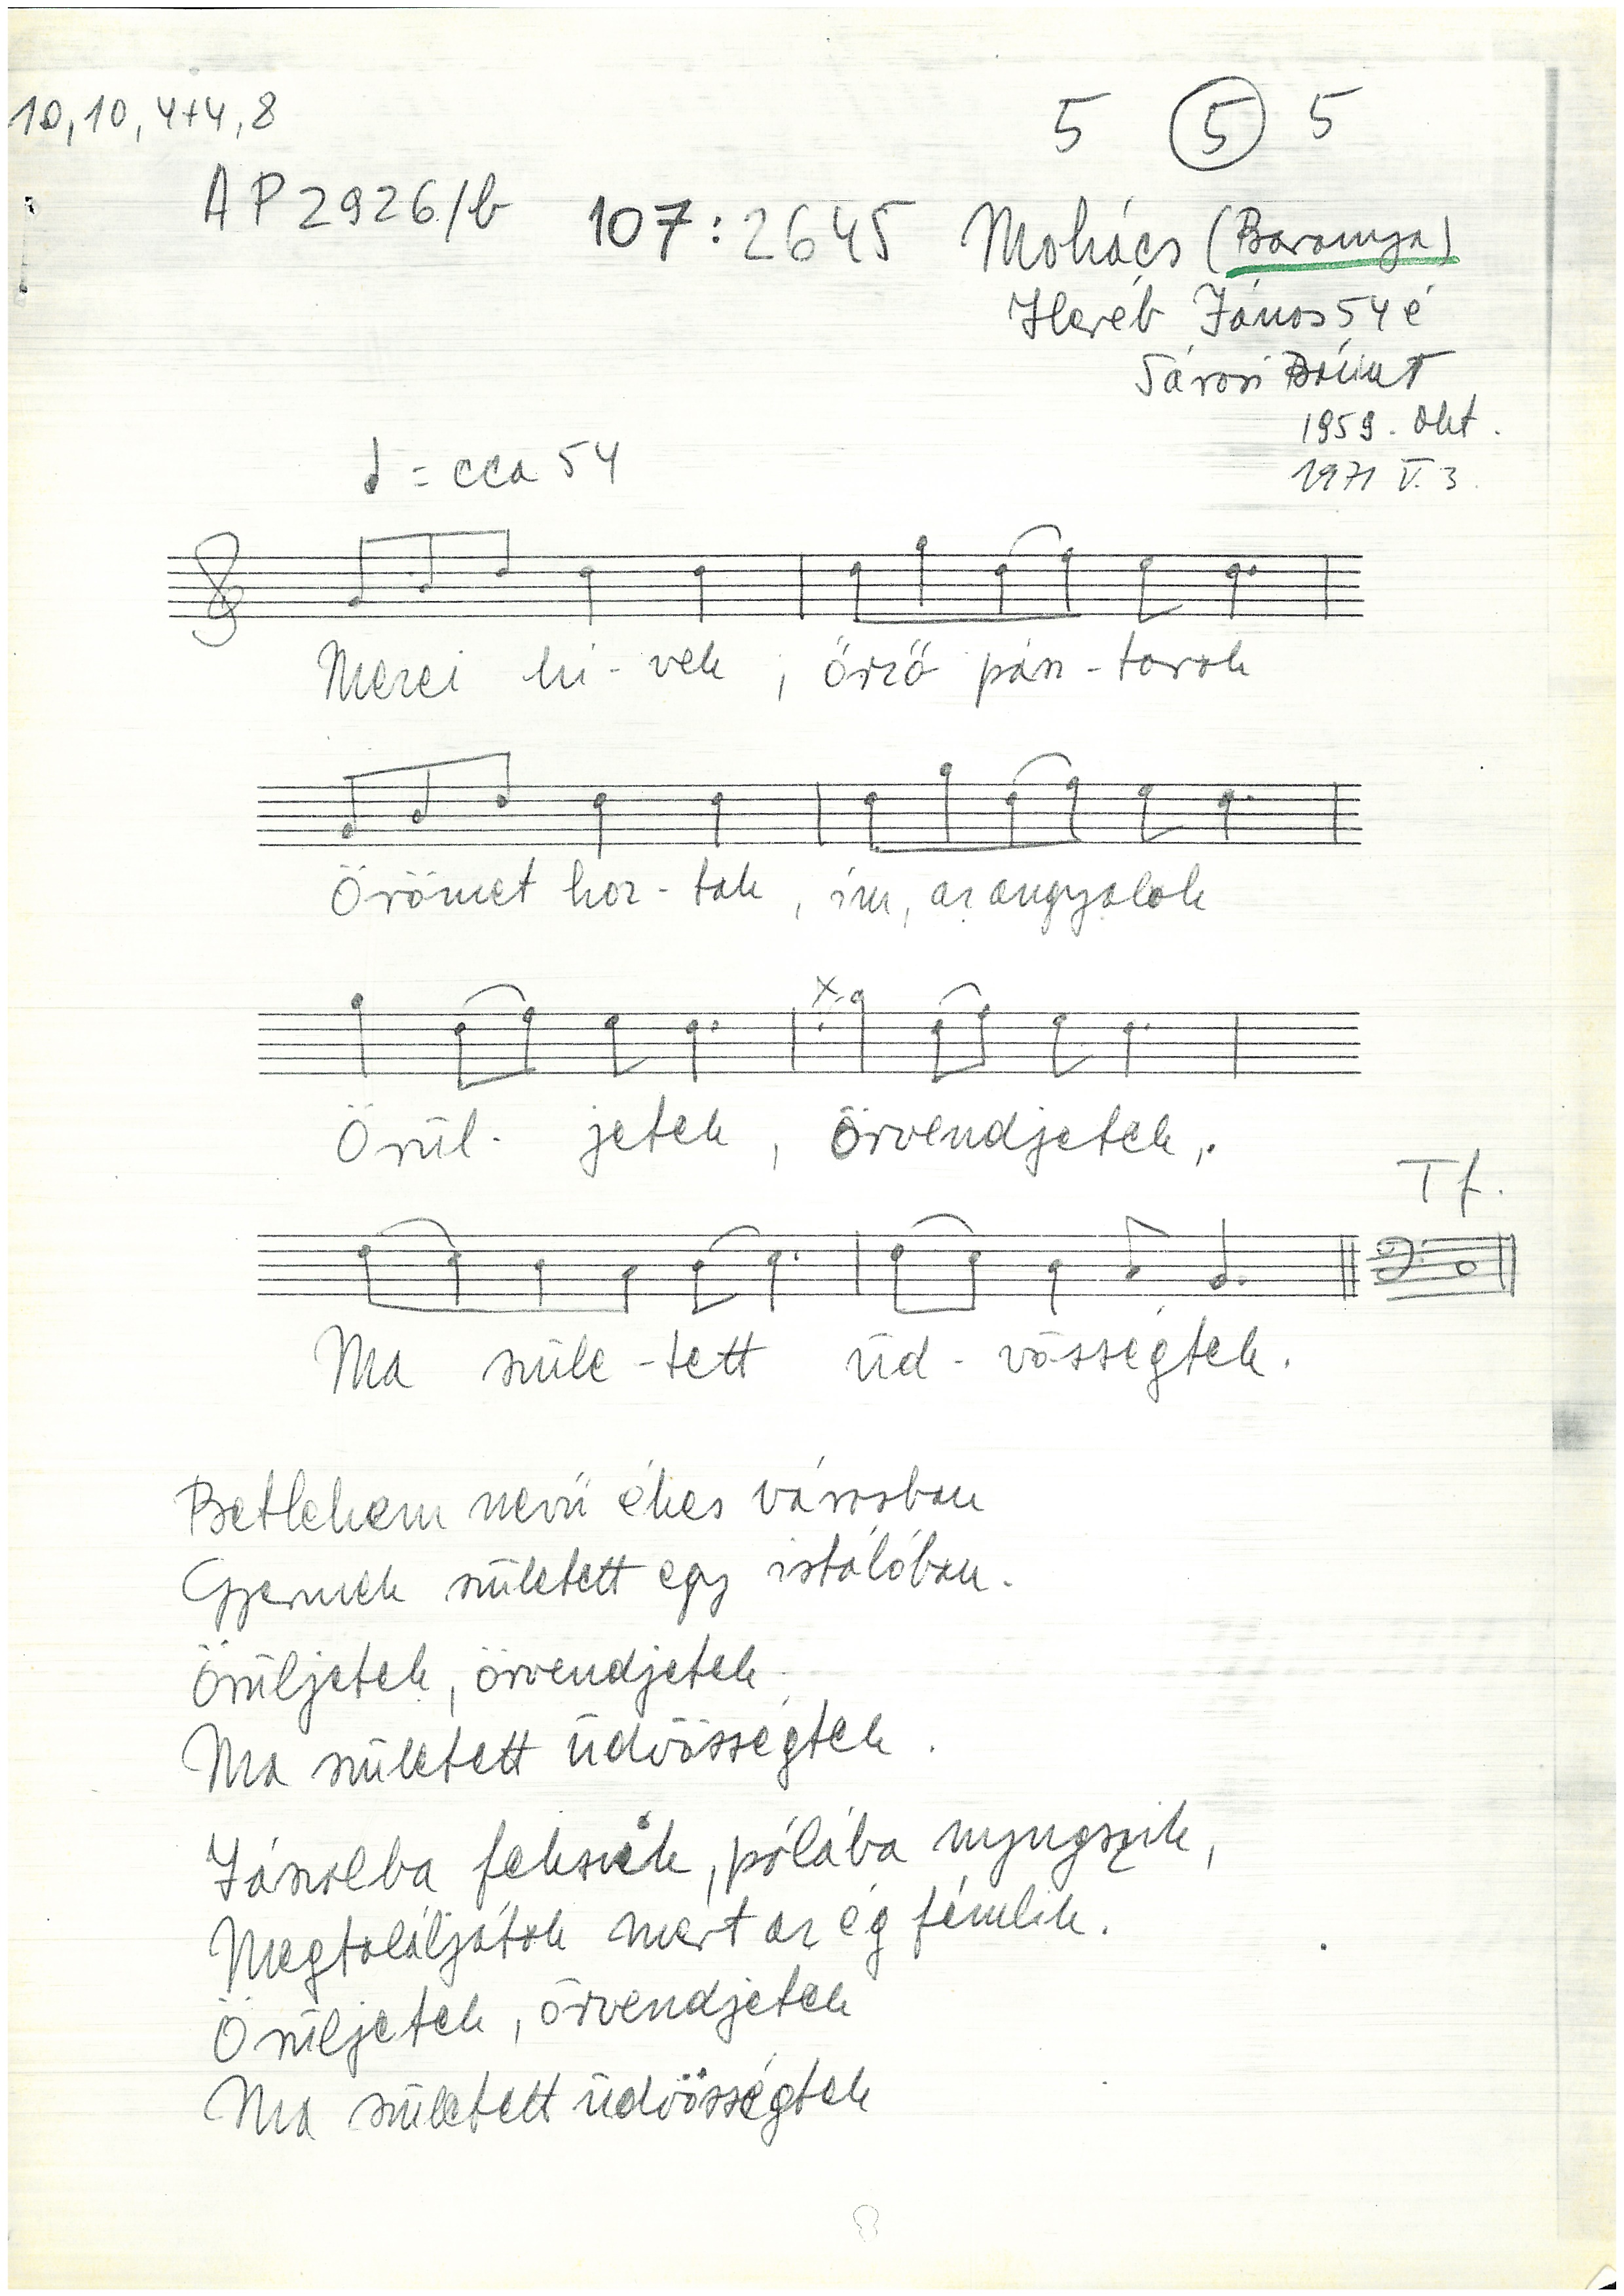 10, 10, 4+4, 8
5 5 5
AP 2926/b 107:2645 Mohács (Baranya)
János 54 é
Sárosi Bálint
1959. Okt.
1971 V. 3.
= cca 54
Mezei hí-vek, őrző pász-torok
Örömet hoz-tak, ím, az angyalok
x
Örül- jetek, örvendjetek,
Tf.
Ma szüle-tett üd-vösségtek.
Betlehem nevű éhes városban
Gyermek született egy istálóban.
Örüljetek, örvendjetek
Ma született üdvösségtek.
Jászolba fekszik, pólába nyugszik,
Megtaláljátok mert az ég fénulik.
Örüljetek, örvendjetek
Ma született üdvösségtek